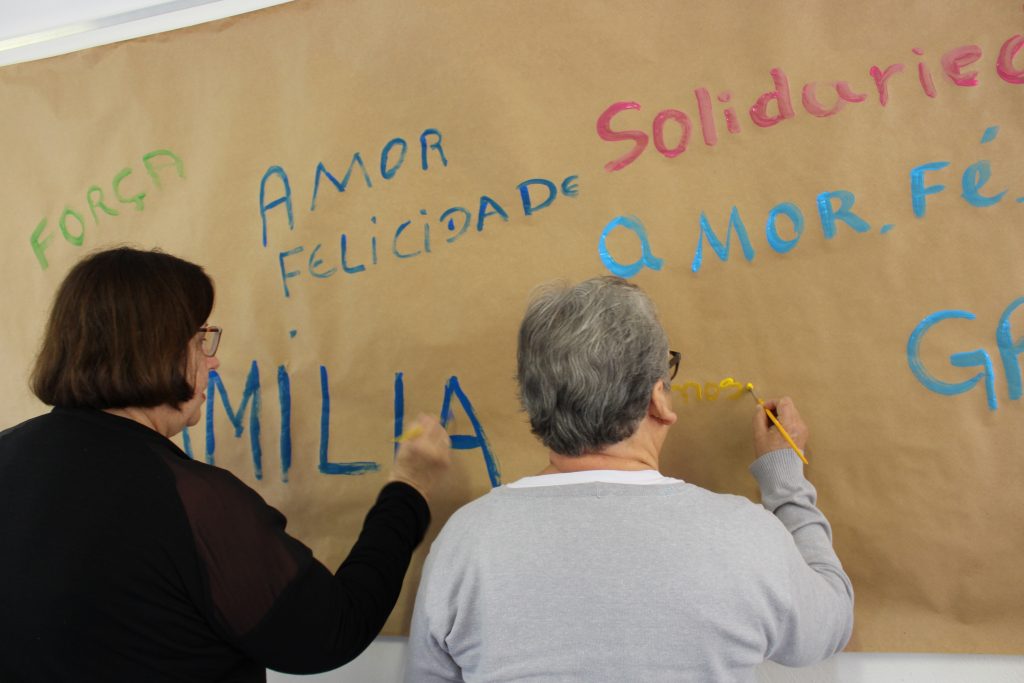 FORÇA
AMOR
FELICIDADE
Solidaried
aMOR. FÉ.
GA
MÍLIA
mos